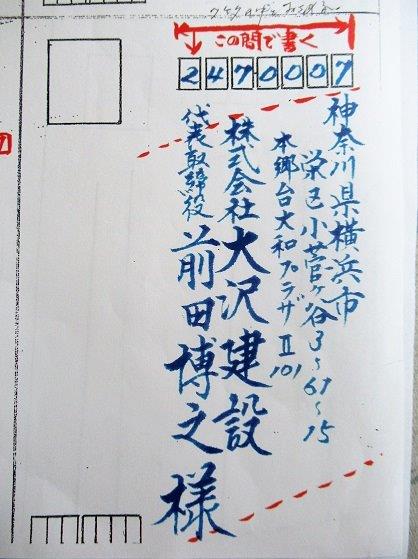 この間で書く
2470007
神奈川県横浜市
栄区小菅ヶ谷3~61~15
本郷台大和プラザⅡ101
株式会社大沢建設
代表取締役 前田博之様